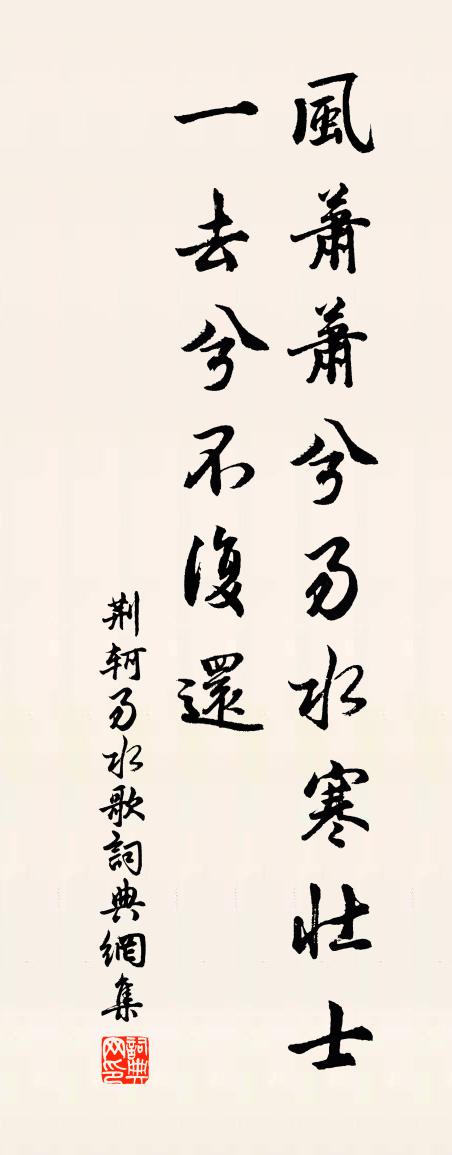 風蕭蕭兮易水寒壯士
一去兮不復還
荆軻易水歌詞典網集
詞典网印